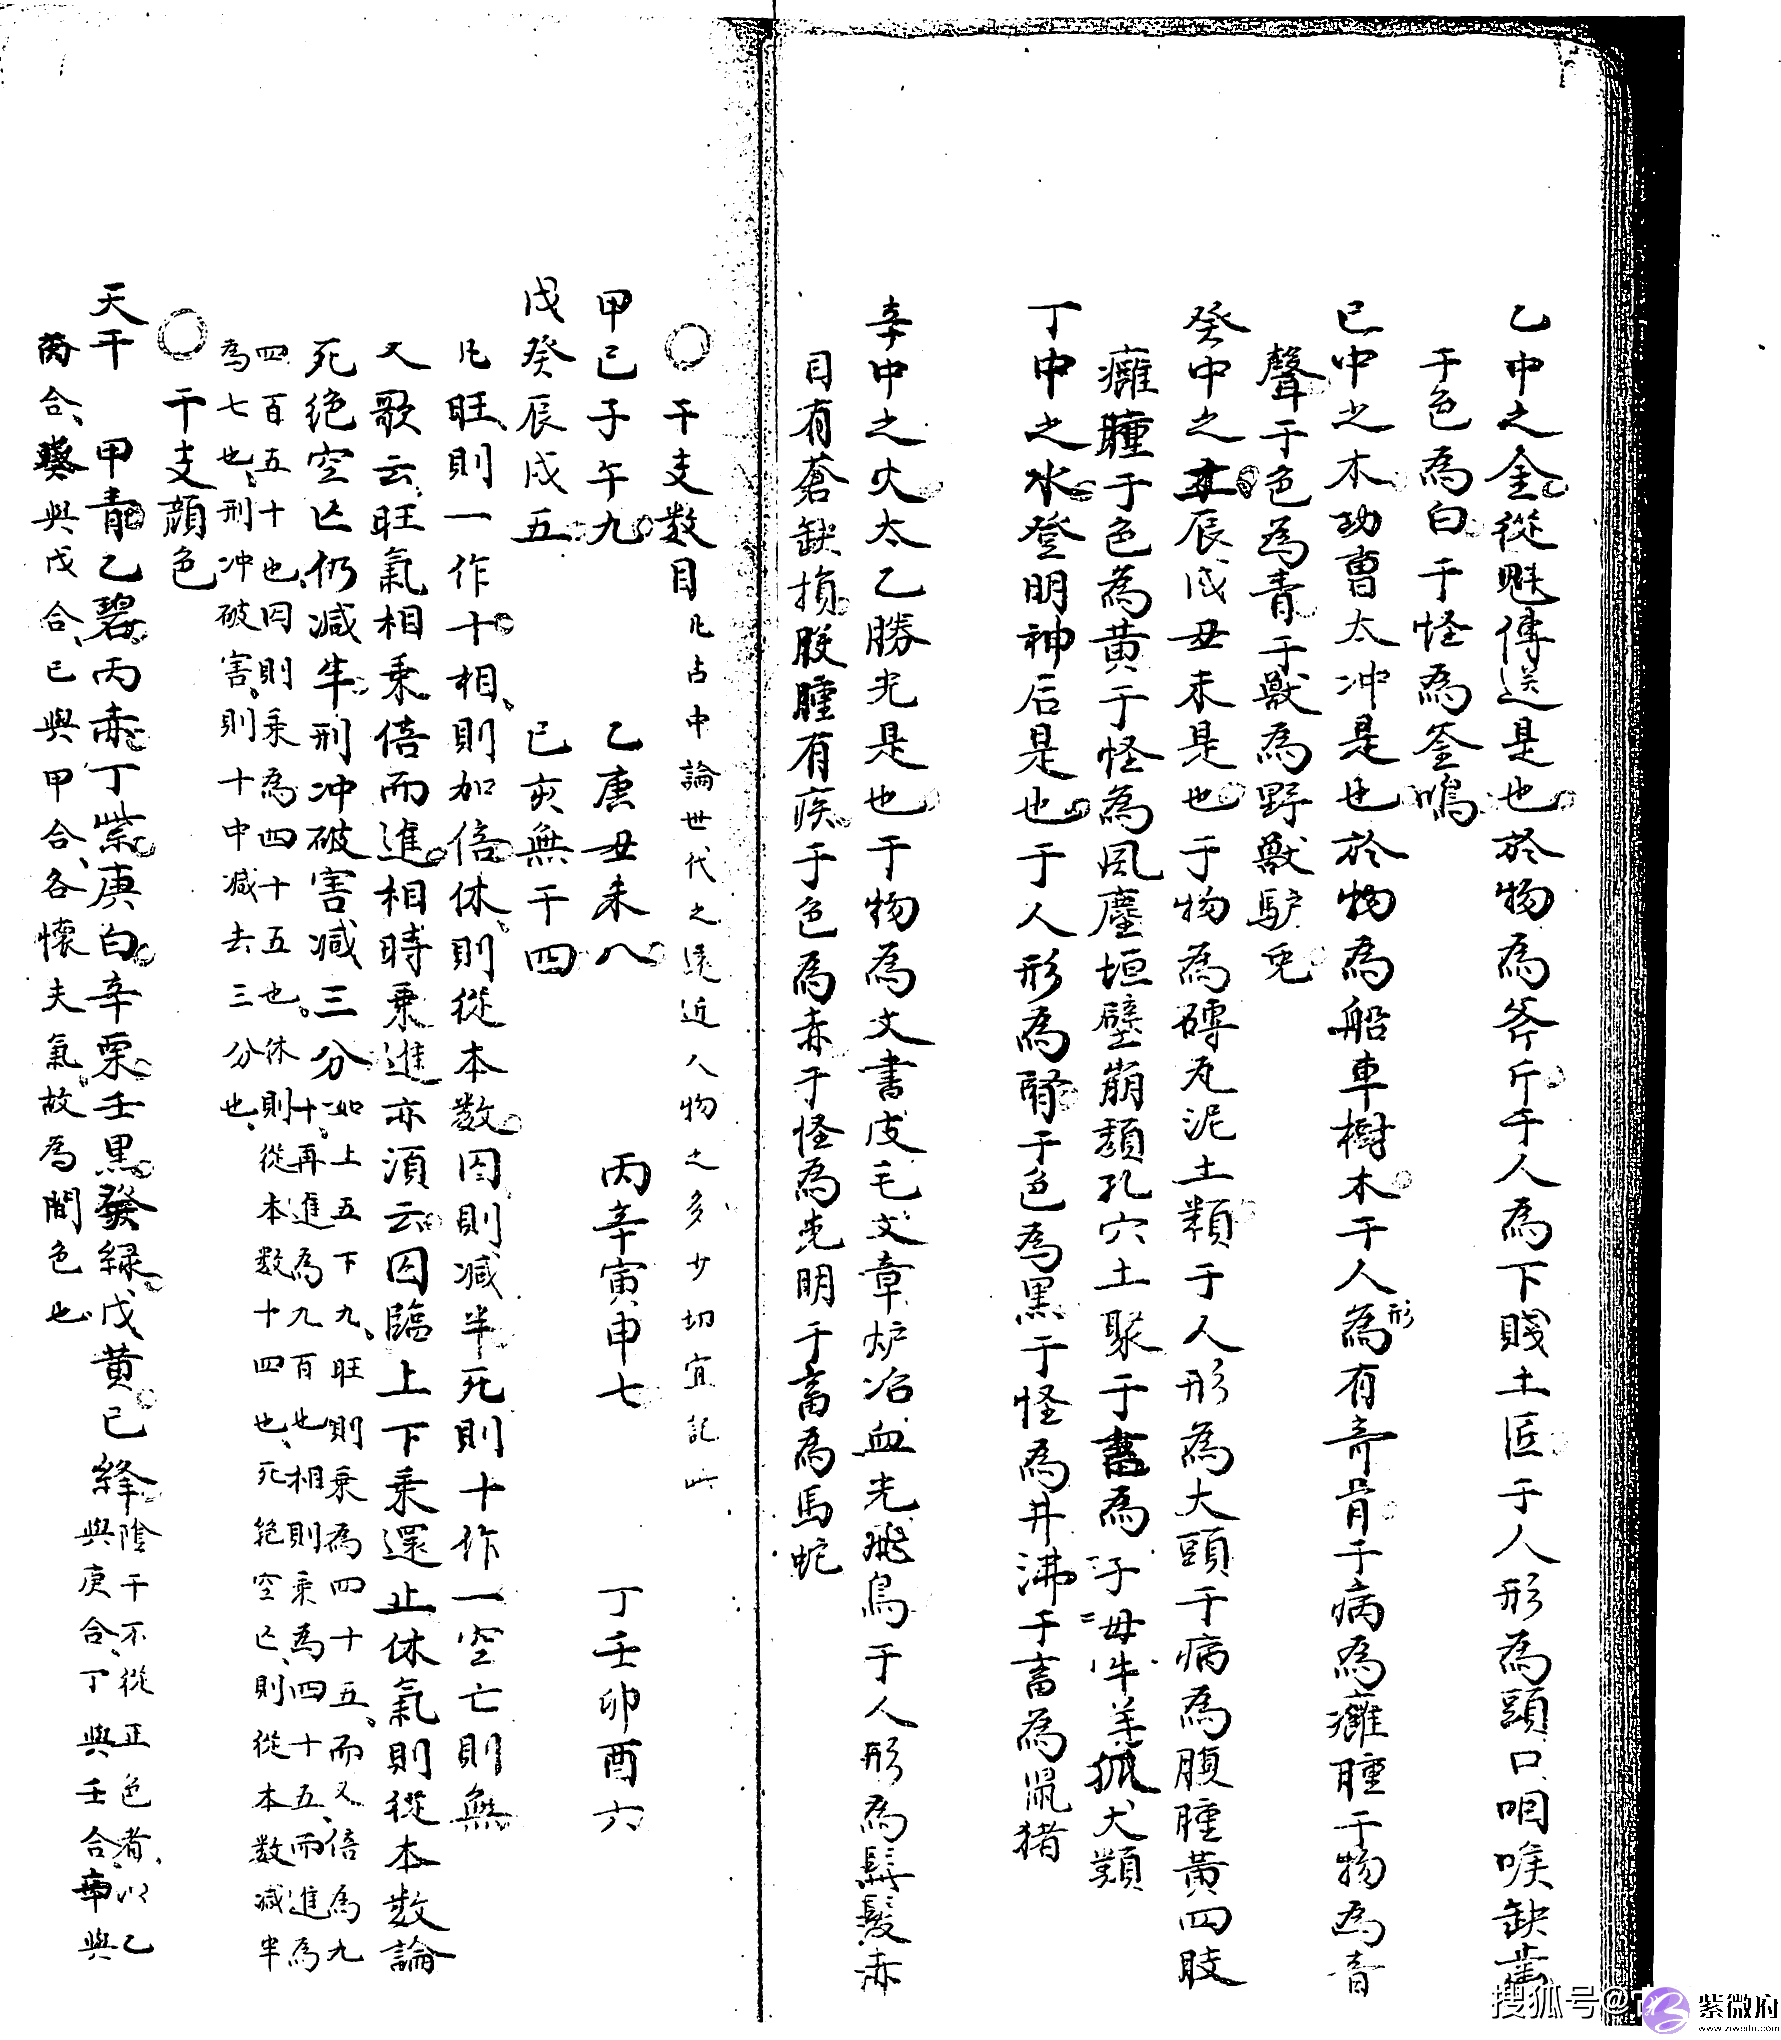 乙中之金從魁傳送是也於物為斧斤于人為下賤土匠于人形為頭口咽喉缺齒
于色為白于怪為釜鳴
已中之木功曹太冲是也於物為船車樹木于人形為有奇肯于病為癰腫于物為音
聲于色為青于獸為野獸馿兔
癸中之土辰戌丑未是也于物為磚瓦泥土類于人形為大頭于病為腹腫黃四肢
癰腫于色為黄于怪為風塵垣壁崩頹孔穴土聚于畜為子母牛羊狐犬類
丁中之水登明神后是也于人形為腎于色為黑于怪為井沸于畜為鼠猪
辛中之火太乙勝光是也于物為文書皮毛文章炉冶血光飛鳥于人形為髯髮赤
目有蒼缺損股腫有疾于色為赤于怪為光明于畜為馬蛇
〇干支数目 凡占中論世代之遠近人物之多少切宜記此
甲己子午九 乙庚丑未八 丙辛寅申七 丁壬卯酉六
戊癸辰戌五 已亥無干四
凡旺則一作十相則加倍休則從本数囚則减半死則十作一空亡則無
又歌云旺氣相乘倍而進相時乘進亦須云囚臨上下乘還止休氣則從本数論
死绝空亡仍减半刑冲破害减三分 如上五下九旺則乘為四十五而又倍為九
十再進為九百也相則乘為四十五而進為
四百五十也囚則乘為四十五也休則從本数十四也死绝空亡則從本数减半
為七也刑冲破害則十中减去三分也
〇干支顔色
天干 甲青乙碧丙赤丁紫庚白辛栗壬黒癸緑戊黄已絳 陰干不從正色者以乙
與庚合丁與壬合辛與
丙合癸與戊合已與甲合各懷夫氣故為間色也
搜狐号@
紫微府
www.ziweifu.com